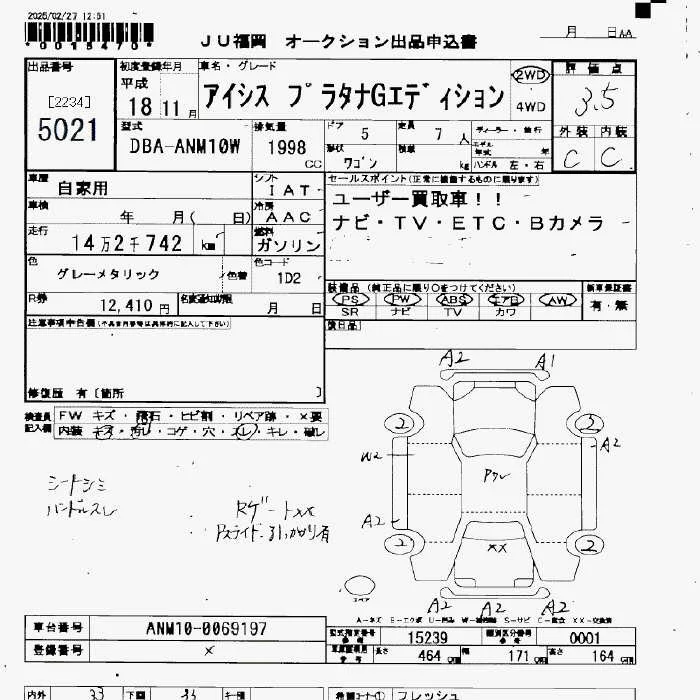 2025/02/27 12:51
*0015470*
JU福岡 オークション出品申込書
月 日 AA
出品番号
[2234]
5021
初度登録年月
平成
18 11 月
車名・グレード
アイシス プラタナGエディション
2WD
4WD
評価点
3.5
外装 内装
C C
型式
DBA-ANM10W
排気量
1998
CC
ドア 5
定員 7 人
形状 ワゴン
積載 kg
ディーラー・並行
モデル年式 年
ハンドル 左・右
車歴
自家用
シフト
IAT
車検
年 月( 日)
冷房
AAC
走行
14万2千742 km
燃料
ガソリン
色
グレーメタリック
色替
色コード
1D2
R券
12,410 円
名変通知期限
月 日
セールスポイント(正常に機能するものに限ります)
ユーザー買取車!!
ナビ・TV・ETC・Bカメラ
装備品 (純正品に限り○をつけてください)
PS PW ABS エアB AW
SR ナビ TV カワ
新車保証書
有・無
後日品
注意事項申告欄(不具合内容等は具体的に記入して下さい)
修復歴 有〔箇所 〕
検査員
記入欄
FW キズ・飛石・ヒビ割・リペア跡・×要
内装 キズ・汚れ・コゲ・穴・スレ・キレ・破レ
シートシミ
ハンドルスレ
Rゲート××
Pスライド・引っかかり有
A2 A1
2 3
W2 A2
Pクレ
A2
2 ×× 2
スペア
A2 A2 A2
A-キズ E-エクボ U-凹み W-補修跡 S-サビ C-腐食 XX-交換済
車台番号
ANM10-0069197
登録番号
×
型式指定番号
15239
類別区分番号
0001
長さ 464 cm
幅 171 cm
高さ 164 cm
内外 33 下回 33 キー預
希望コーナー① フレッシュ